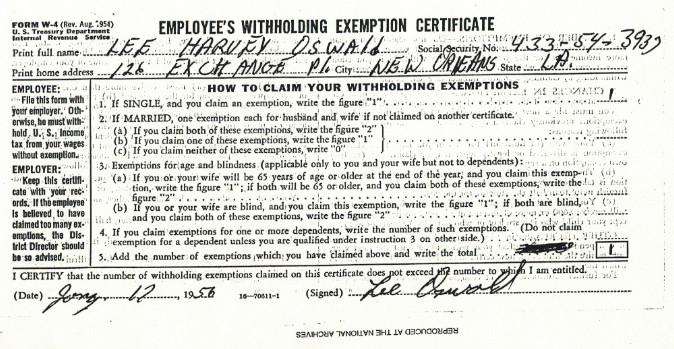 FORM W-4 (Rev. Aug. 1954)
U. S. Treasury Department
Internal Revenue Service
EMPLOYEE'S WITHHOLDING EXEMPTION CERTIFICATE
Print full name LEE HARVEY OSWALD Social Security No. 433-54-3937
Print home address 126 EXCHANGE PL. City NEW ORLEANS State LA.
EMPLOYEE:
File this form with
your employer. Oth-
erwise, he must with-
hold U. S. Income
tax from your wages
without exemption.
EMPLOYER:
Keep this certifi-
cate with your rec-
ords. If the employee
is believed to have
claimed too many ex-
emptions, the Dis-
trict Director should
be so advised.
HOW TO CLAIM YOUR WITHHOLDING EXEMPTIONS
1. If SINGLE, and you claim an exemption, write the figure "1" 1
2. If MARRIED, one exemption each for husband and wife if not claimed on another certificate.
(a) If you claim both of these exemptions, write the figure "2"
(b) If you claim one of these exemptions, write the figure "1"
(c) If you claim neither of these exemptions, write "0"
3. Exemptions for age and blindness (applicable only to you and your wife but not to dependents):
(a) If you or your wife will be 65 years of age or older at the end of the year, and you claim this exemp-
tion, write the figure "1"; if both will be 65 or older, and you claim both of these exemptions, write the
figure "2"
(b) If you or your wife are blind, and you claim this exemption, write the figure "1"; if both are blind,
and you claim both of these exemptions, write the figure "2"
4. If you claim exemptions for one or more dependents, write the number of such exemptions. (Do not claim
exemption for a dependent unless you are qualified under instruction 3 on other side.)
5. Add the number of exemptions which you have claimed above and write the total 1
I CERTIFY that the number of withholding exemptions claimed on this certificate does not exceed the number to which I am entitled.
(Date) Jan. 12, 1956 16—70611-1 (Signed) Lee Oswald
REPRODUCED AT THE NATIONAL ARCHIVES